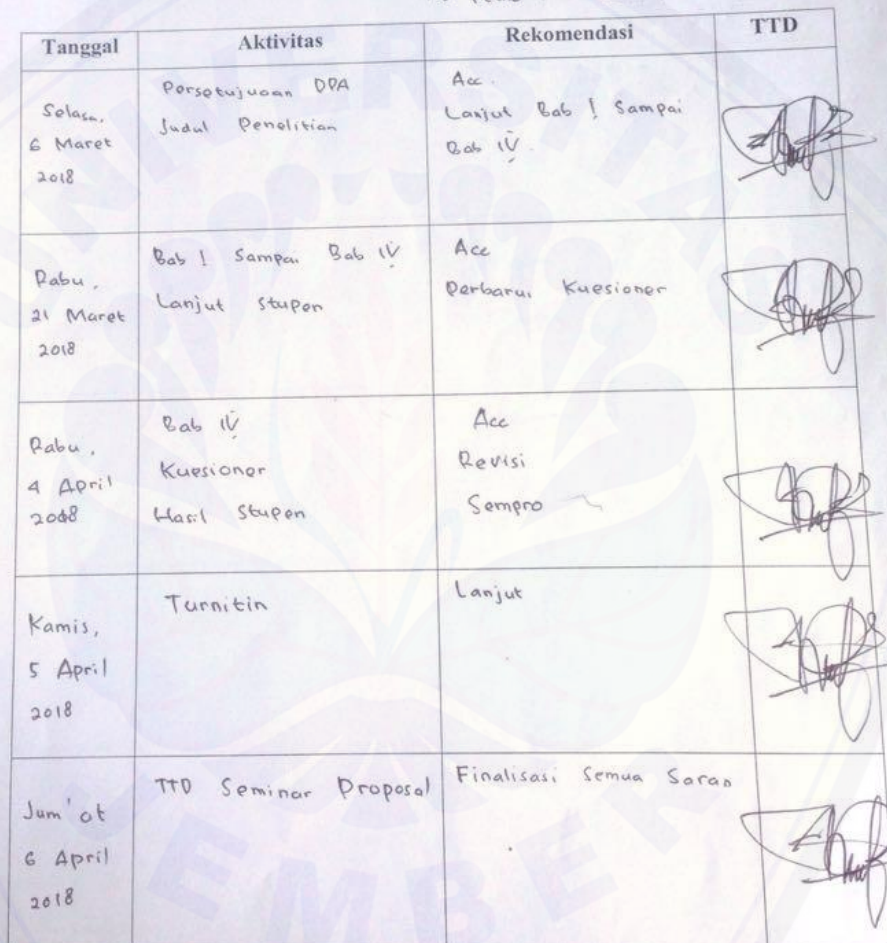 Tanggal Aktivitas Rekomendasi TTD
Selasa,
6 Maret
2018
Persetujuan DPA
Judul Penelitian
Acc.
Lanjut Bab I Sampai
Bab IV.
Rabu,
21 Maret
2018
Bab I Sampai Bab IV
Lanjut Stupen
Acc
Perbarui Kuesioner
Rabu,
4 April
2018
Bab IV
Kuesioner
Hasil Stupen
Acc
Revisi
Sempro
Kamis,
5 April
2018
Turnitin
Lanjut
Jum'at
6 April
2018
TTD Seminar Proposal
Finalisasi Semua Saran
UNIVERSITAS
JEMBER